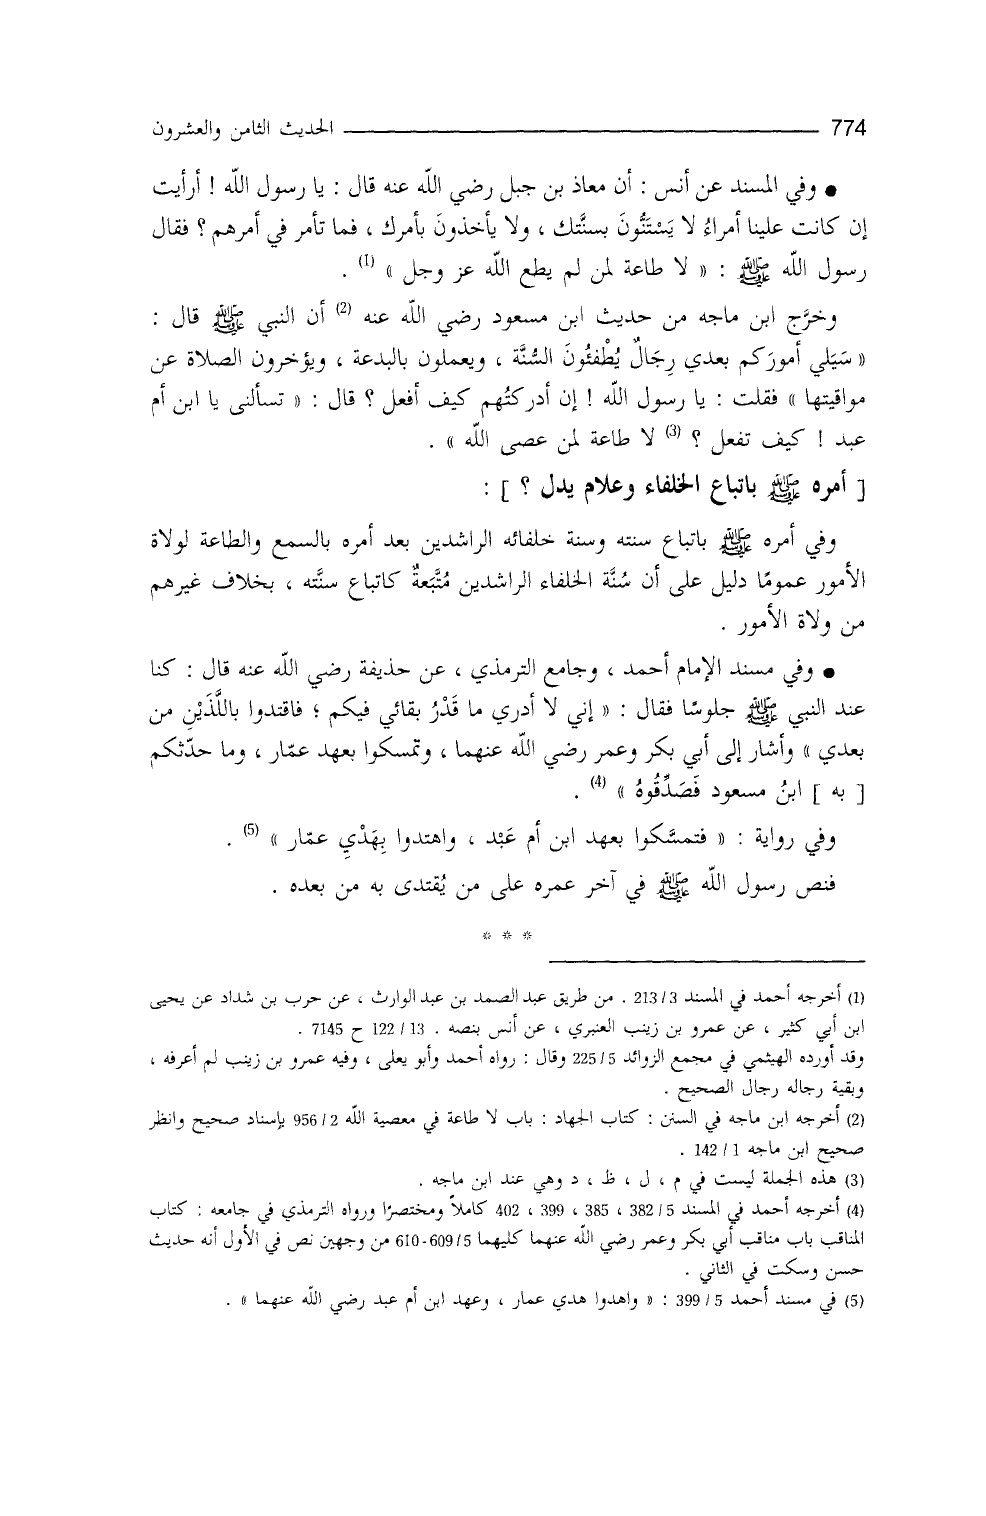 774 الحديث الثامن والعشرون
● وفي المسند عن أنس : أن معاذ بن جبل رضي اللّه عنه قال : يا رسول اللّه ! أرأيت
إن كانت علينا أمراءُ لا يَسْتَنُّونَ بسنَّتك ، ولا يأخذونَ بأمرك ، فما تأمر في أمرهم ؟ فقال
رسول اللّه ﷺ : « لا طاعة لمن لم يطع اللّه عز وجل » (1) .
وخرَّج ابن ماجه من حديث ابن مسعود رضي اللّه عنه (2) أن النبي ﷺ قال :
« سَيَلي أمورَكم بعدي رِجَالٌ يُطْفئُونَ السُّنَّة ، ويعملون بالبدعة ، ويؤخرون الصلاة عن
مواقيتها » فقلت : يا رسول اللّه ! إن أدركتُهم كيف أفعل ؟ قال : « تسألنى يا ابن أم
عبد ! كيف تفعل ؟ (3) لا طاعة لمن عصى اللّه » .
[ أمره ﷺ باتباع الخلفاء وعلام يدل ؟ ] :
وفي أمره ﷺ باتباع سنته وسنة خلفائه الراشدين بعد أمره بالسمع والطاعة لولاة
الأمور عمومًا دليل على أن سُنَّة الخلفاء الراشدين مُتَّبَعةٌ كاتباع سنَّته ، بخلاف غيرهم
من ولاة الأمور .
● وفي مسند الإمام أحمد ، وجامع الترمذي ، عن حذيفة رضي اللّه عنه قال : كنا
عند النبي ﷺ جلوسًا فقال : « إني لا أدري ما قَدْرُ بقائي فيكم ؛ فاقتدوا باللَّذَيْنِ من
بعدي » وأشار إلى أبي بكر وعمر رضي اللّه عنهما ، وتمسكوا بعهد عمّار ، وما حدّثكم
[ به ] ابنُ مسعود فَصَدِّقُوهُ » (4) .
وفي رواية : « فتمسَّكوا بعهد ابن أم عَبْد ، واهتدوا بِهَدْيِ عمّار » (5) .
فنص رسول اللّه ﷺ في آخر عمره على من يُقتدى به من بعده .
* * *
(1) أخرجه أحمد في المسند 3/213 . من طريق عبد الصمد بن عبد الوارث ، عن حرب بن شداد عن يحيى
ابن أبي كثير ، عن عمرو بن زينب العنبري ، عن أنس بنصه . 13 / 122 ح 7145 .
وقد أورده الهيثمي في مجمع الزوائد 5/225 وقال : رواه أحمد وأبو يعلى ، وفيه عمرو بن زينب لم أعرفه ،
وبقية رجاله رجال الصحيح .
(2) أخرجه ابن ماجه في السنن : كتاب الجهاد : باب لا طاعة في معصية اللّه 2 / 956 بإسناد صحيح وانظر
صحيح ابن ماجه 1 / 142 .
(3) هذه الجملة ليست في م ، ل ، ظ ، د وهي عند ابن ماجه .
(4) أخرجه أحمد في المسند 5 / 382 ، 385 ، 399 ، 402 كاملاً ومختصرًا ورواه الترمذي في جامعه : كتاب
المناقب باب مناقب أبي بكر وعمر رضي اللّه عنهما كليهما 5/609-610 من وجهين نص في الأول أنه حديث
حسن وسكت في الثاني .
(5) في مسند أحمد 5 / 399 : « واهدوا هدي عمار ، وعهد ابن أم عبد رضي اللّه عنهما » .